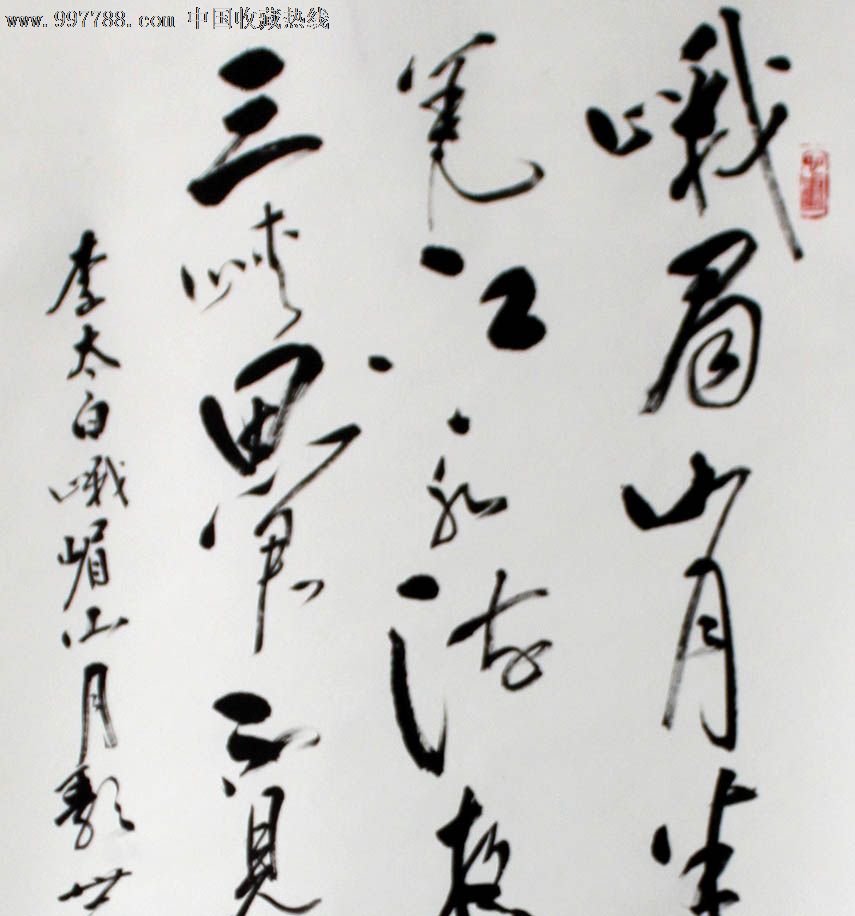 www.997788.com 中国收藏热线
峨眉山月半
羌江水流
三峡思君不见
李太白峨嵋山月歌